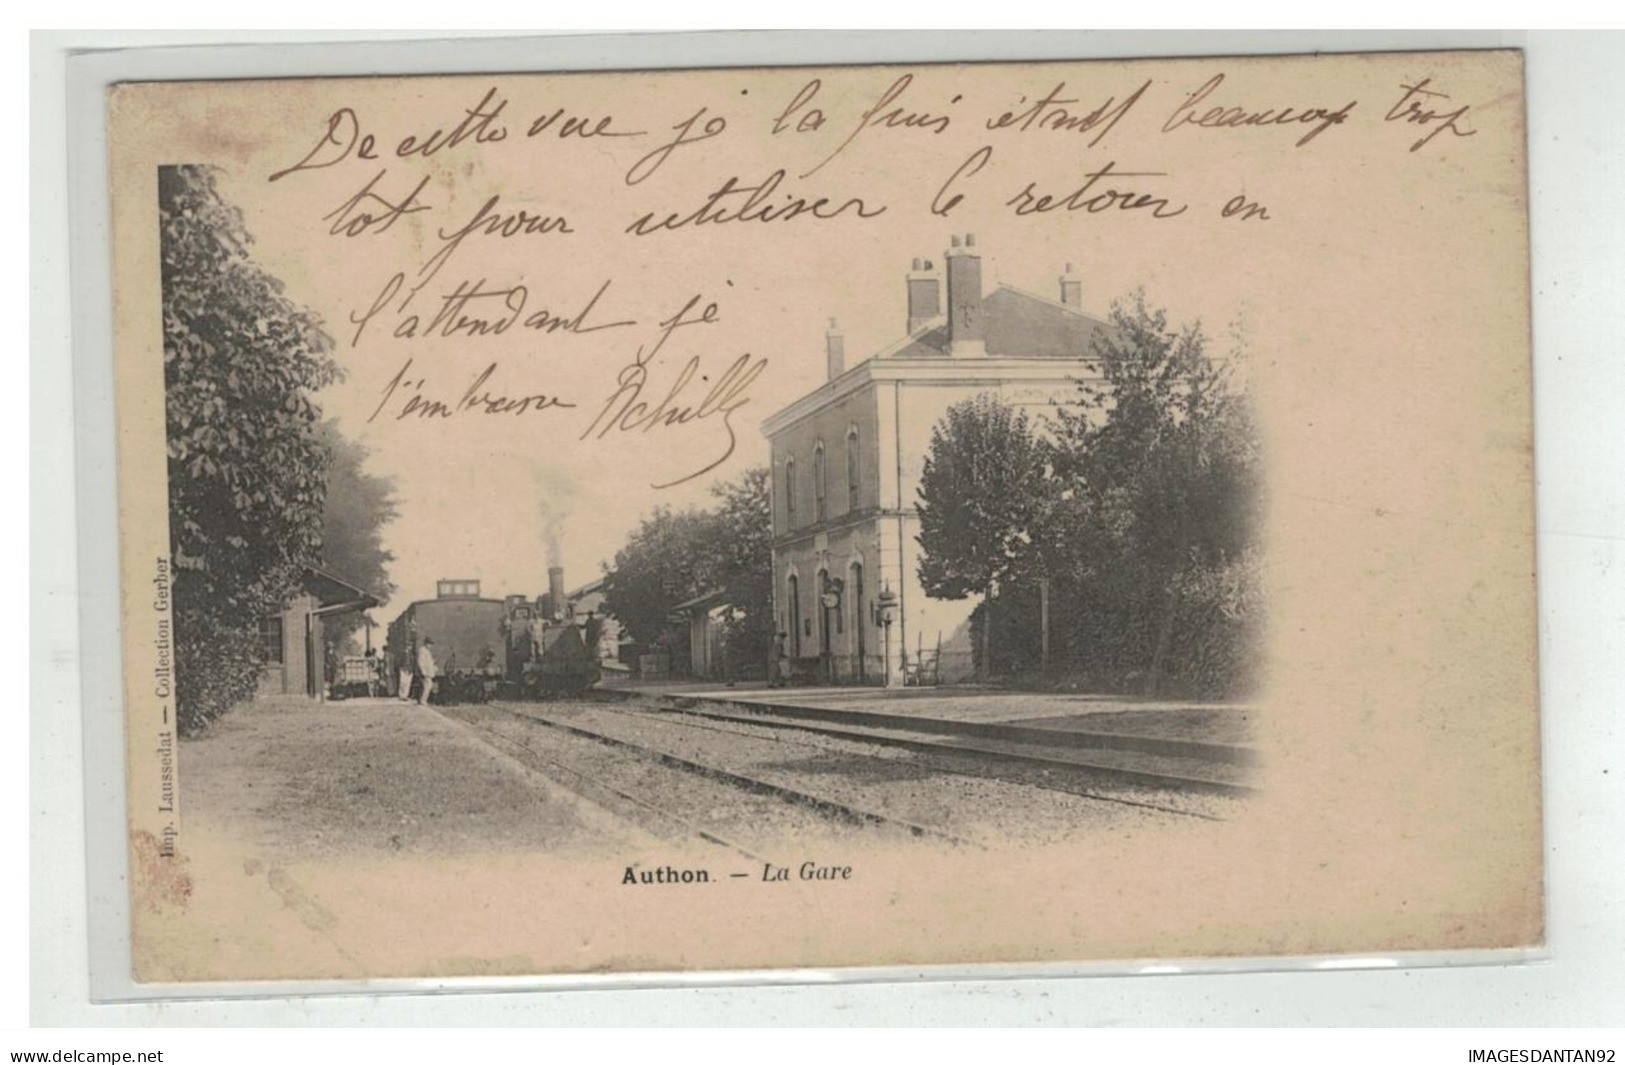 De cette vue je la fuis étant beaucoup trop
tot pour utiliser le retour en
l'attendant je
t'embrasse Achille
Imp. Laussedat — Collection Gerber
Authon. — La Gare
delcampe.net
IMAGESDANTAN92